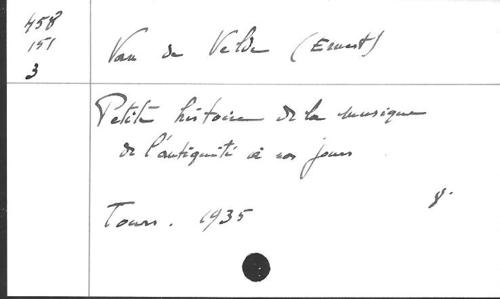 458
151
3
Van de Velde (Ernest)
Petite histoire de la musique
de l'antiquité à nos jours
Tours. 1935